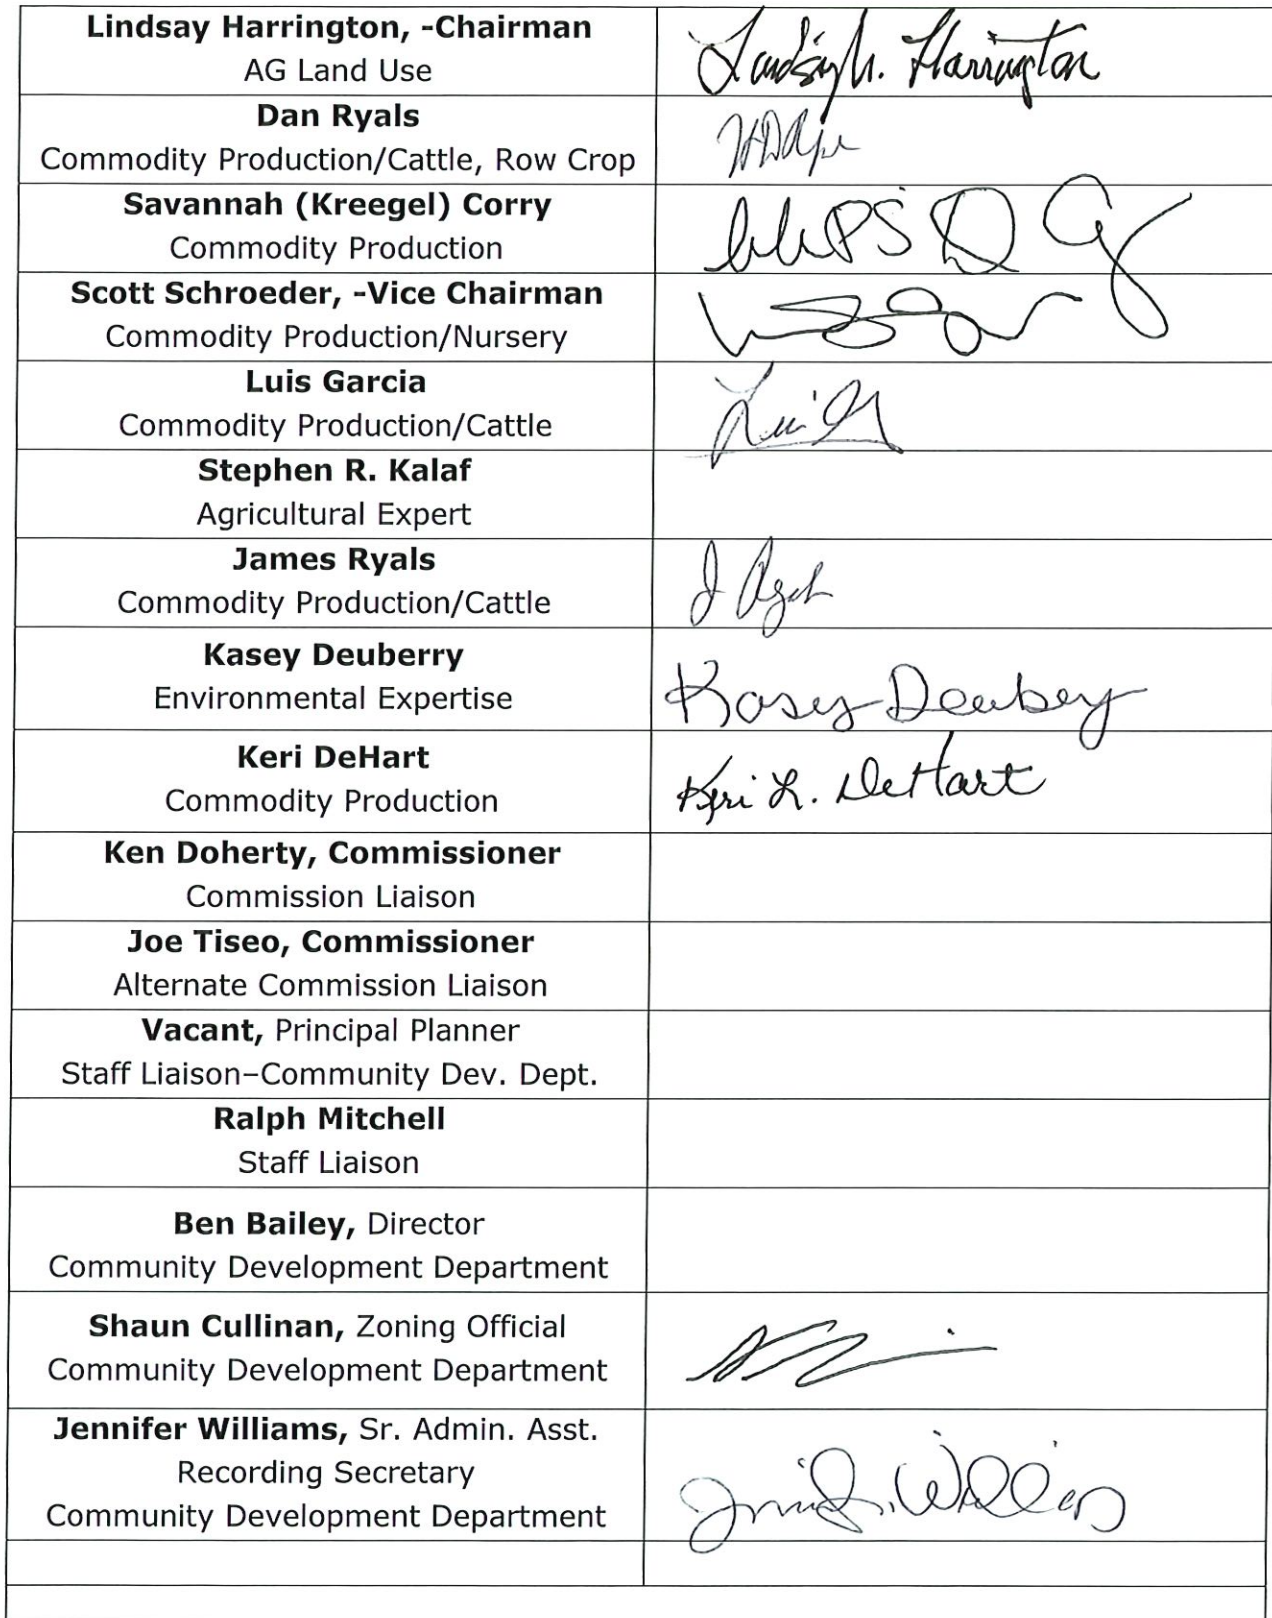 Lindsay Harrington, -Chairman
AG Land Use
Lindsay h. Harrington
Dan Ryals
Commodity Production/Cattle, Row Crop
Savannah (Kreegel) Corry
Commodity Production
Scott Schroeder, -Vice Chairman
Commodity Production/Nursery
Luis Garcia
Commodity Production/Cattle
Stephen R. Kalaf
Agricultural Expert
James Ryals
Commodity Production/Cattle
Kasey Deuberry
Environmental Expertise
Kasey
Keri DeHart
Commodity Production
Keri L. DeHart
Ken Doherty, Commissioner
Commission Liaison
Joe Tiseo, Commissioner
Alternate Commission Liaison
Vacant, Principal Planner
Staff Liaison–Community Dev. Dept.
Ralph Mitchell
Staff Liaison
Ben Bailey, Director
Community Development Department
Shaun Cullinan, Zoning Official
Community Development Department
Jennifer Williams, Sr. Admin. Asst.
Recording Secretary
Community Development Department